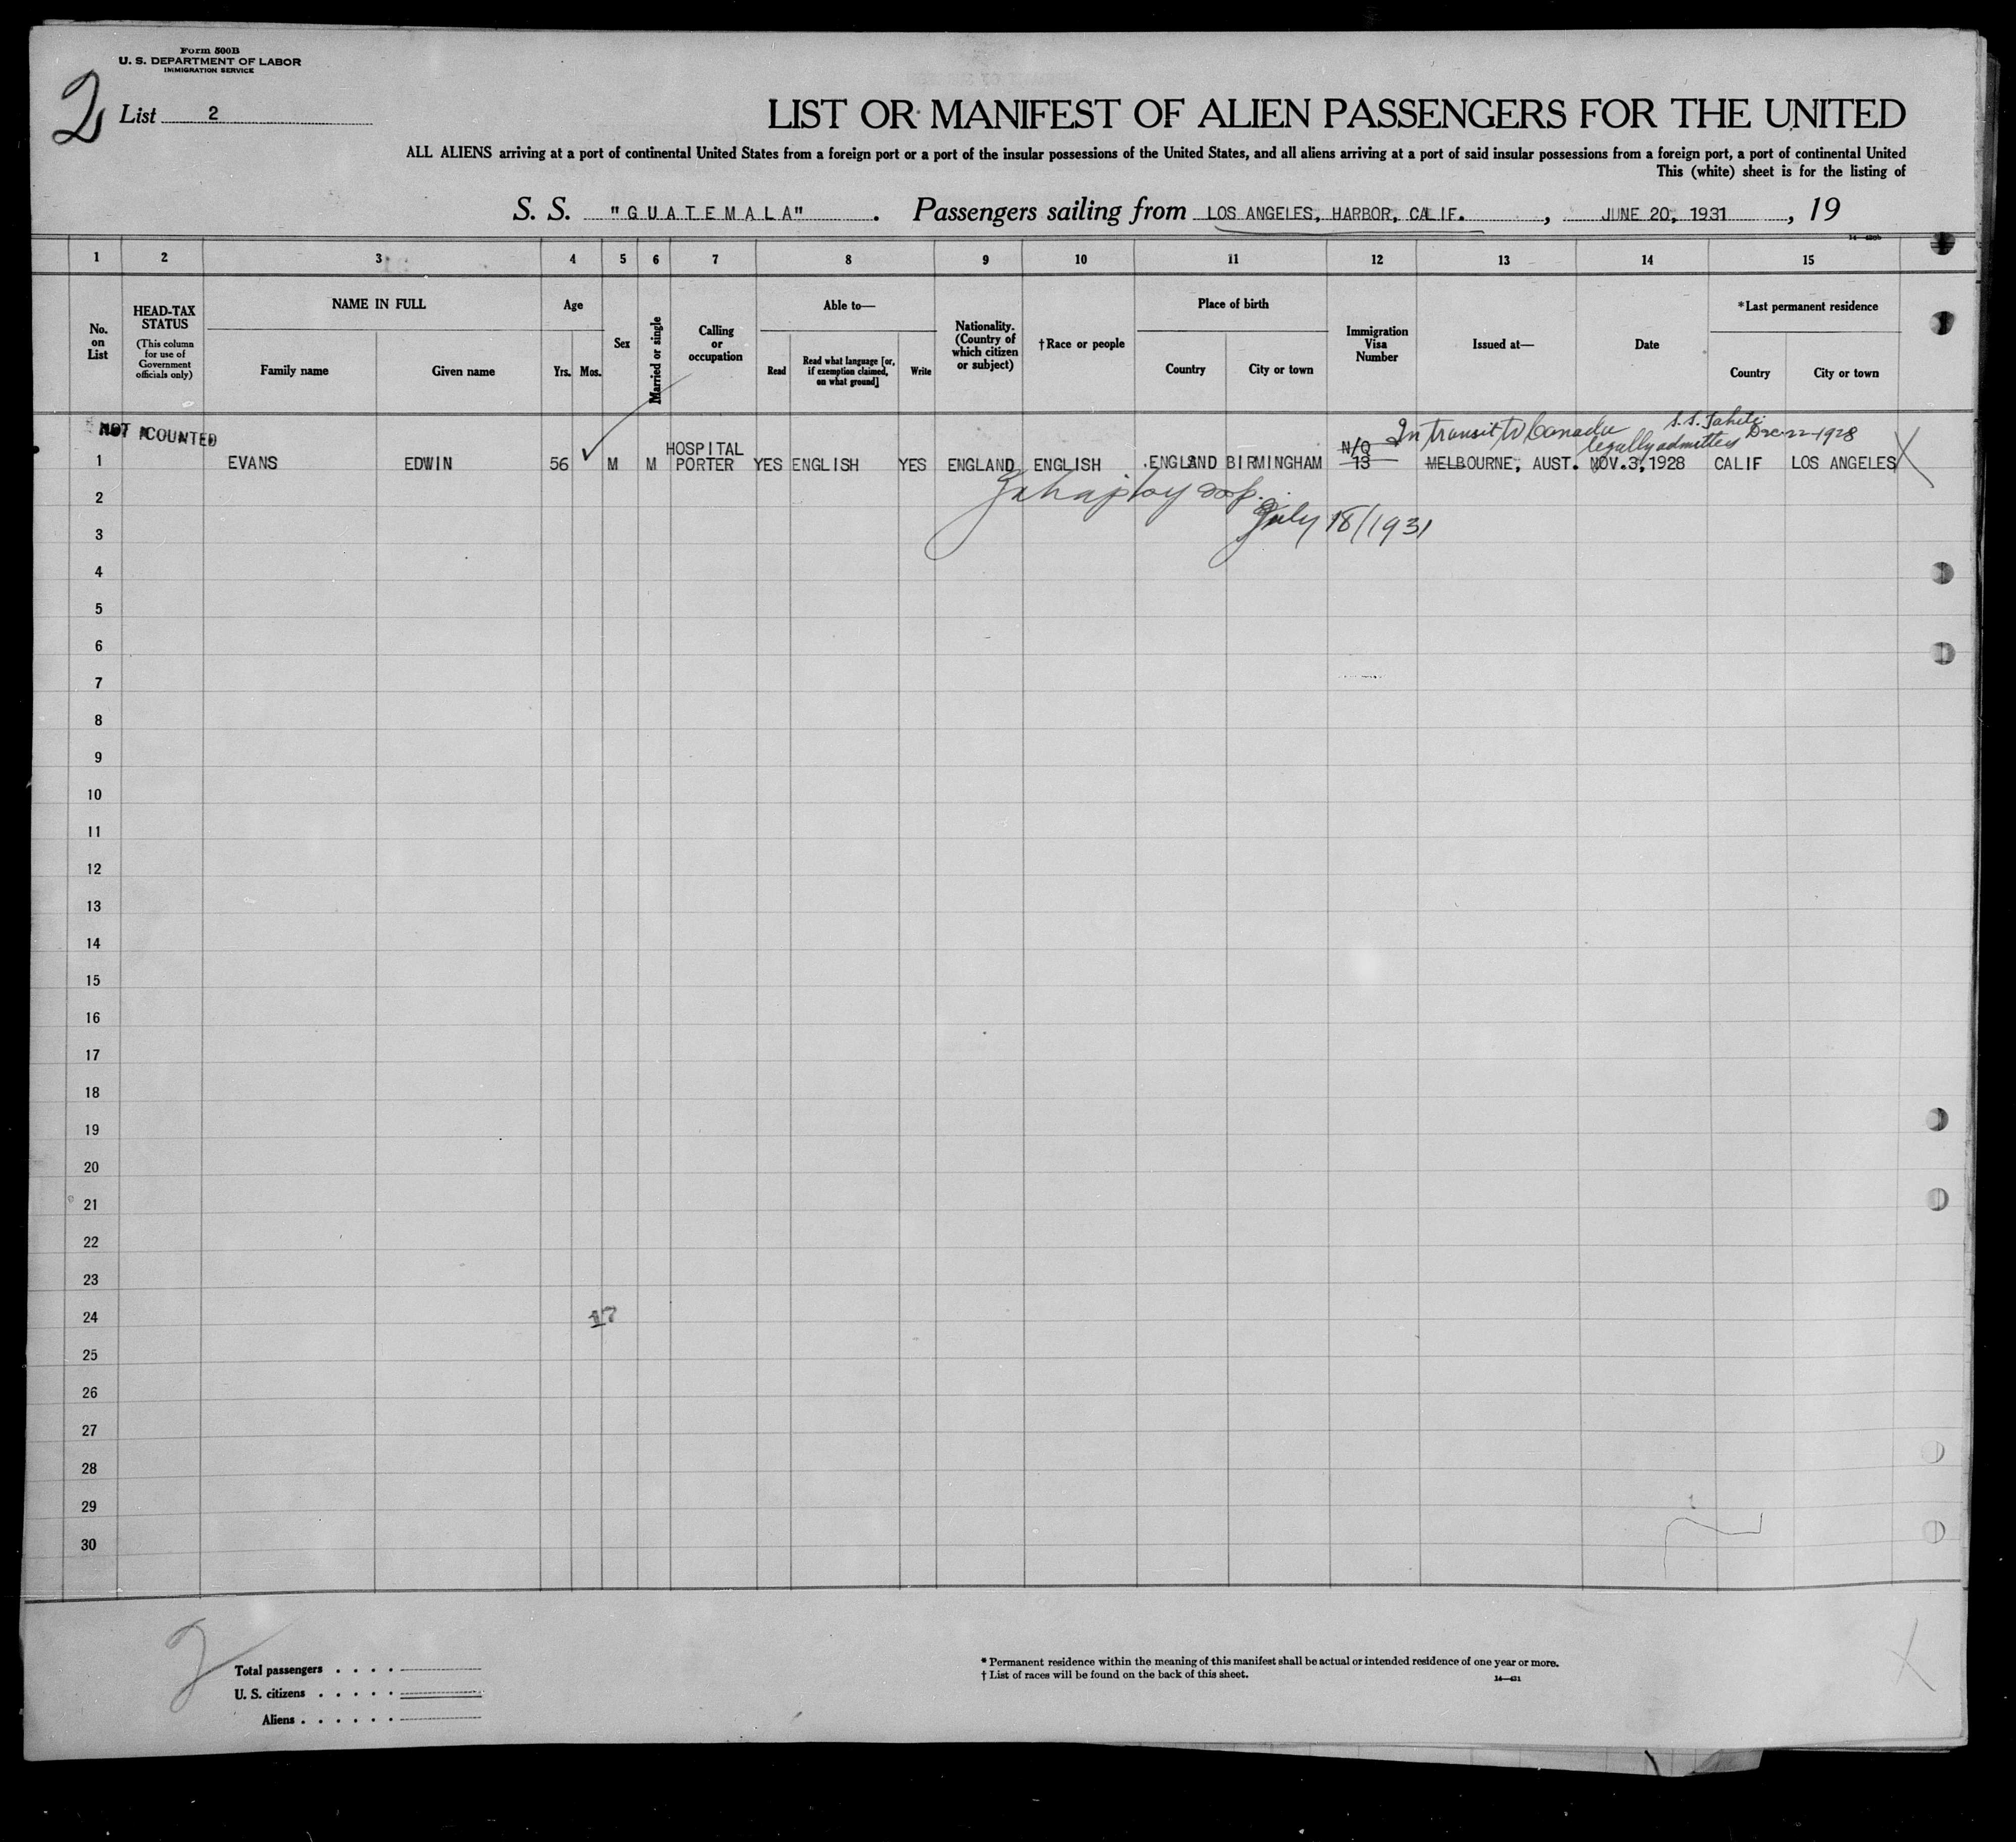 Form 500B
U. S. DEPARTMENT OF LABOR
IMMIGRATION SERVICE
2
List 2
LIST OR MANIFEST OF ALIEN PASSENGERS FOR THE UNITED
ALL ALIENS arriving at a port of continental United States from a foreign port or a port of the insular possessions of the United States, and all aliens arriving at a port of said insular possessions from a foreign port, a port of continental United
This (white) sheet is for the listing of
S. S. "GUATEMALA" . Passengers sailing from LOS ANGELES, HARBOR, CALIF. , JUNE 20, 1931 , 19
1 2 3 4 5 6 7 8 9 10 11 12 13 14 15
No. on List
HEAD-TAX STATUS
(This column for use of Government officials only)
NAME IN FULL
Family name
Given name
Age
Yrs. Mos.
Sex
Married or single
Calling or occupation
Able to—
Read
Read what language [or, if exemption claimed, on what ground]
Write
Nationality. (Country of which citizen or subject)
†Race or people
Place of birth
Country
City or town
Immigration Visa Number
Issued at—
Date
*Last permanent residence
Country
City or town
NOT COUNTED
In transit to Canada S.S. Tahiti
legally admitted Dec-22-1928
1 EVANS EDWIN 56 M M HOSPITAL PORTER YES ENGLISH YES ENGLAND ENGLISH ENGLAND BIRMINGHAM N/Q 13 MELBOURNE, AUST. NOV.3,1928 CALIF LOS ANGELES X
2
July 18/1931
3
4
5
6
7
8
9
10
11
12
13
14
15
16
17
18
19
20
21
22
23
24
17
25
26
27
28
29
30
2
Total passengers . . . .
U. S. citizens . . . . .
Aliens . . . . . .
* Permanent residence within the meaning of this manifest shall be actual or intended residence of one year or more.
† List of races will be found on the back of this sheet.
14—431
X